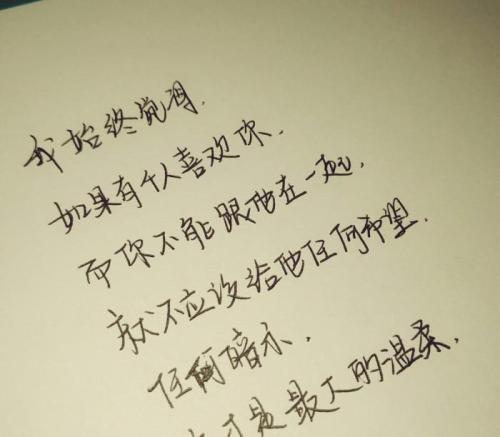 我始终觉得.
如果有个人喜欢你.
而你不能跟他在一起.
就不应该给他任何希望.
任何暗示.
才是最大的温柔.